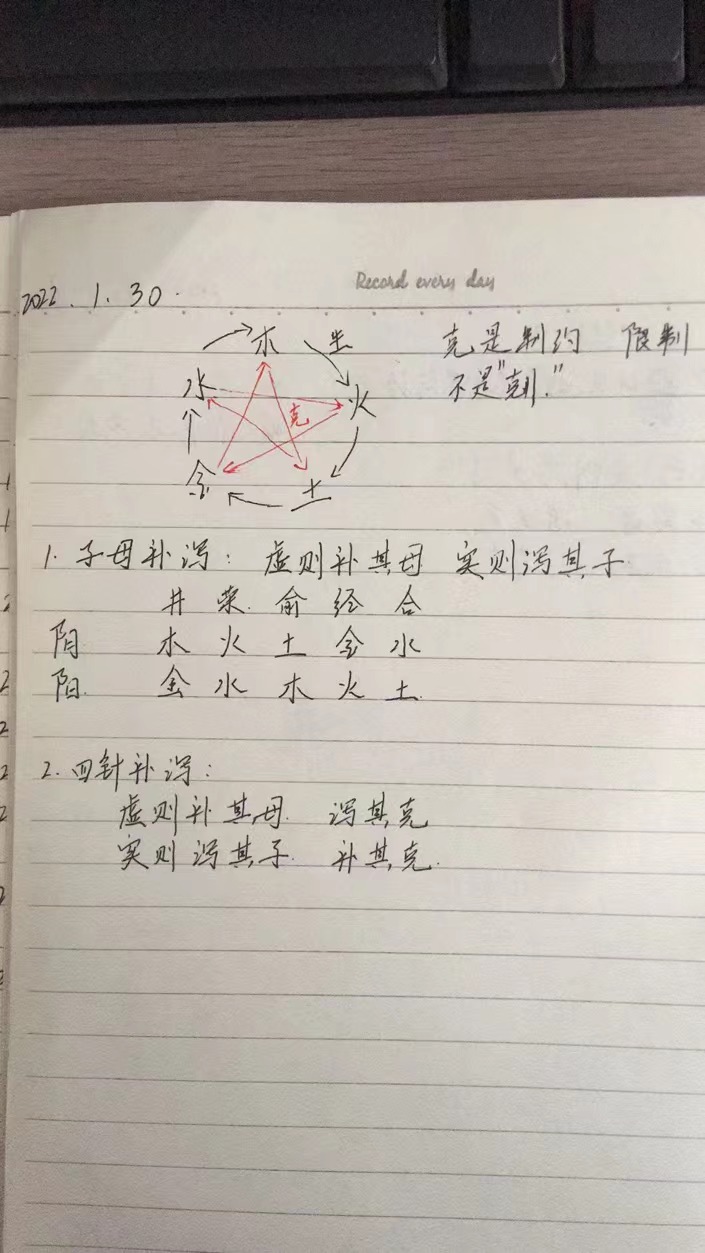 Record every day
2022.1.30.
木 生
水 火
克
金 土
克是制约 限制
不是"剋."
1. 子母补泻: 虚则补其母 实则泻其子
井 荥 俞 经 合
阴 木 火 土 金 水
阳. 金 水 木 火 土.
2. 四针补泻:
虚则补其母. 泻其克
实则泻其子. 补其克.